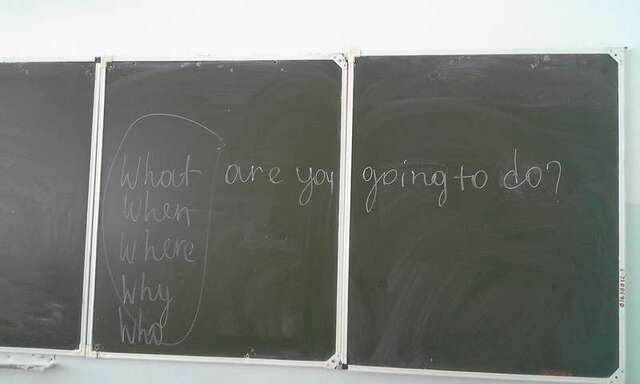 What are you going to do?
When
Where
Why
Who